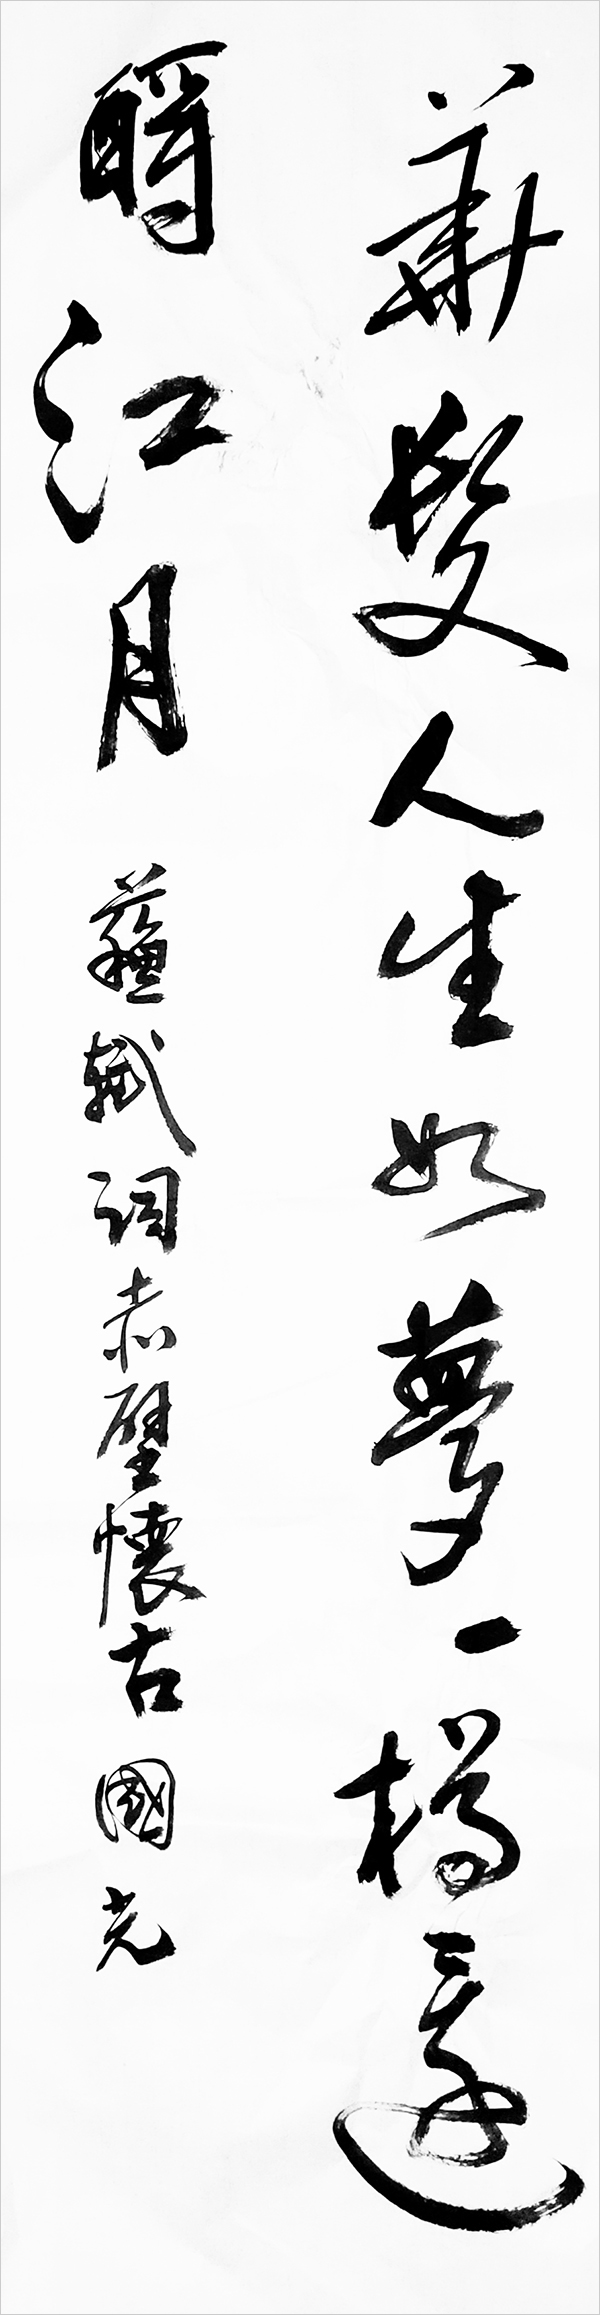 華髮人生如夢一樽還
酹江月 蘇軾詞赤壁懷古 國光